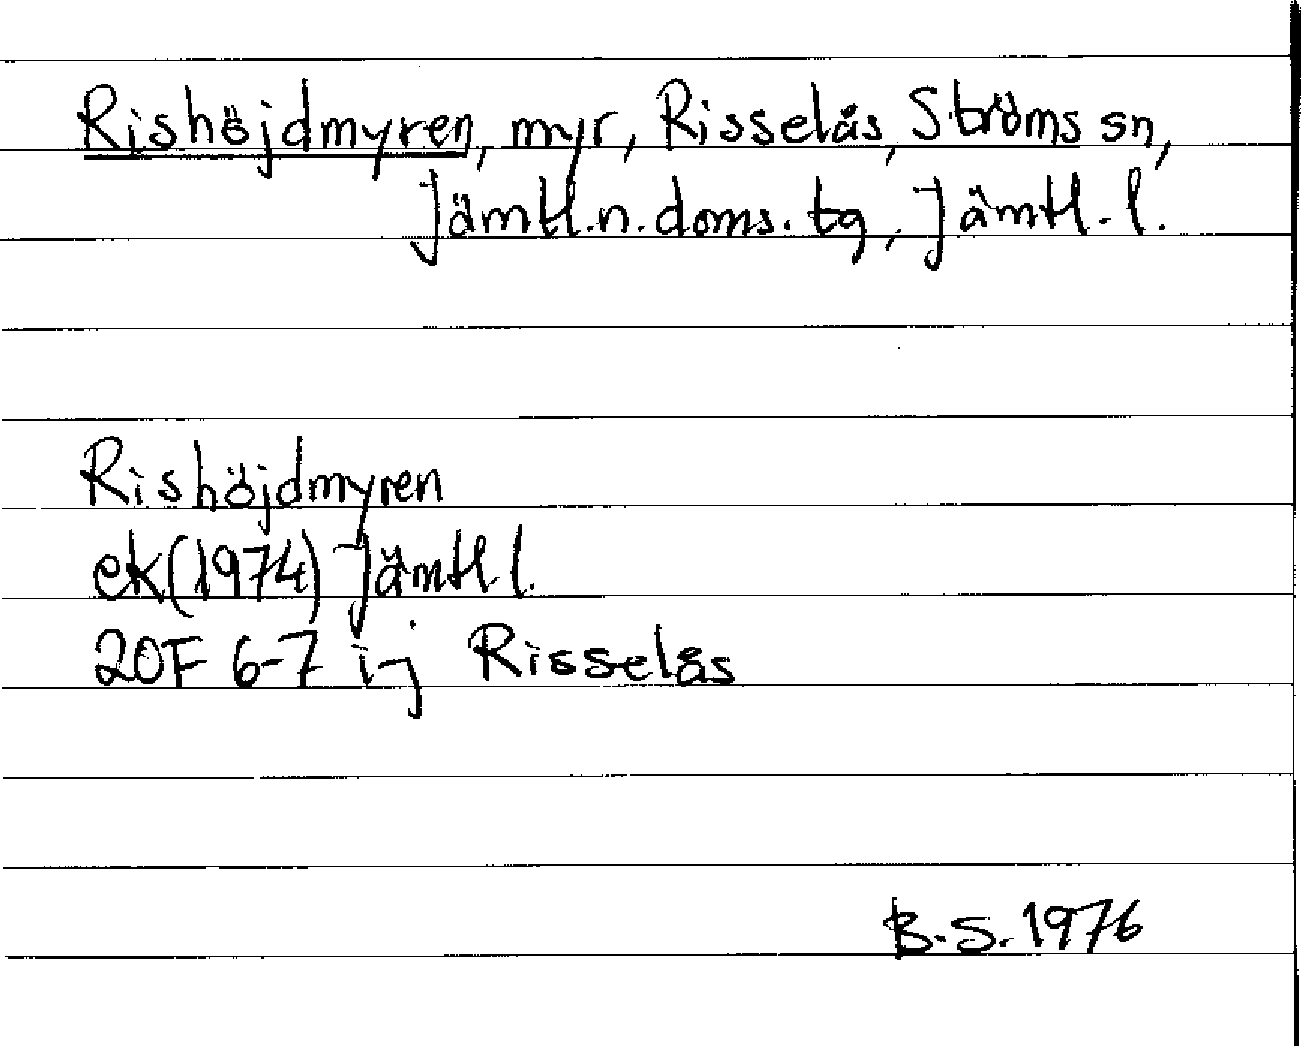 Rishöjdmyren, myr, Risselås, Ströms sn,
Jämtl.n.doms.tg, Jämtl. l.
Rishöjdmyren
ek(1974) Jämtl l.
20F 6-7 i-j Risselås
B.S. 1976